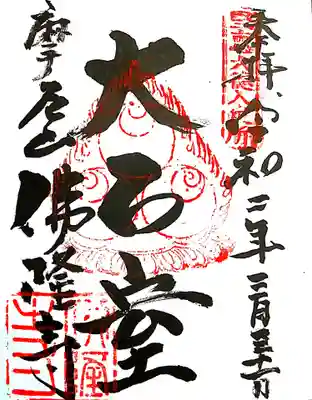 奉拝、令和二年三月三十一日
大石室
摩尼山佛隆寺